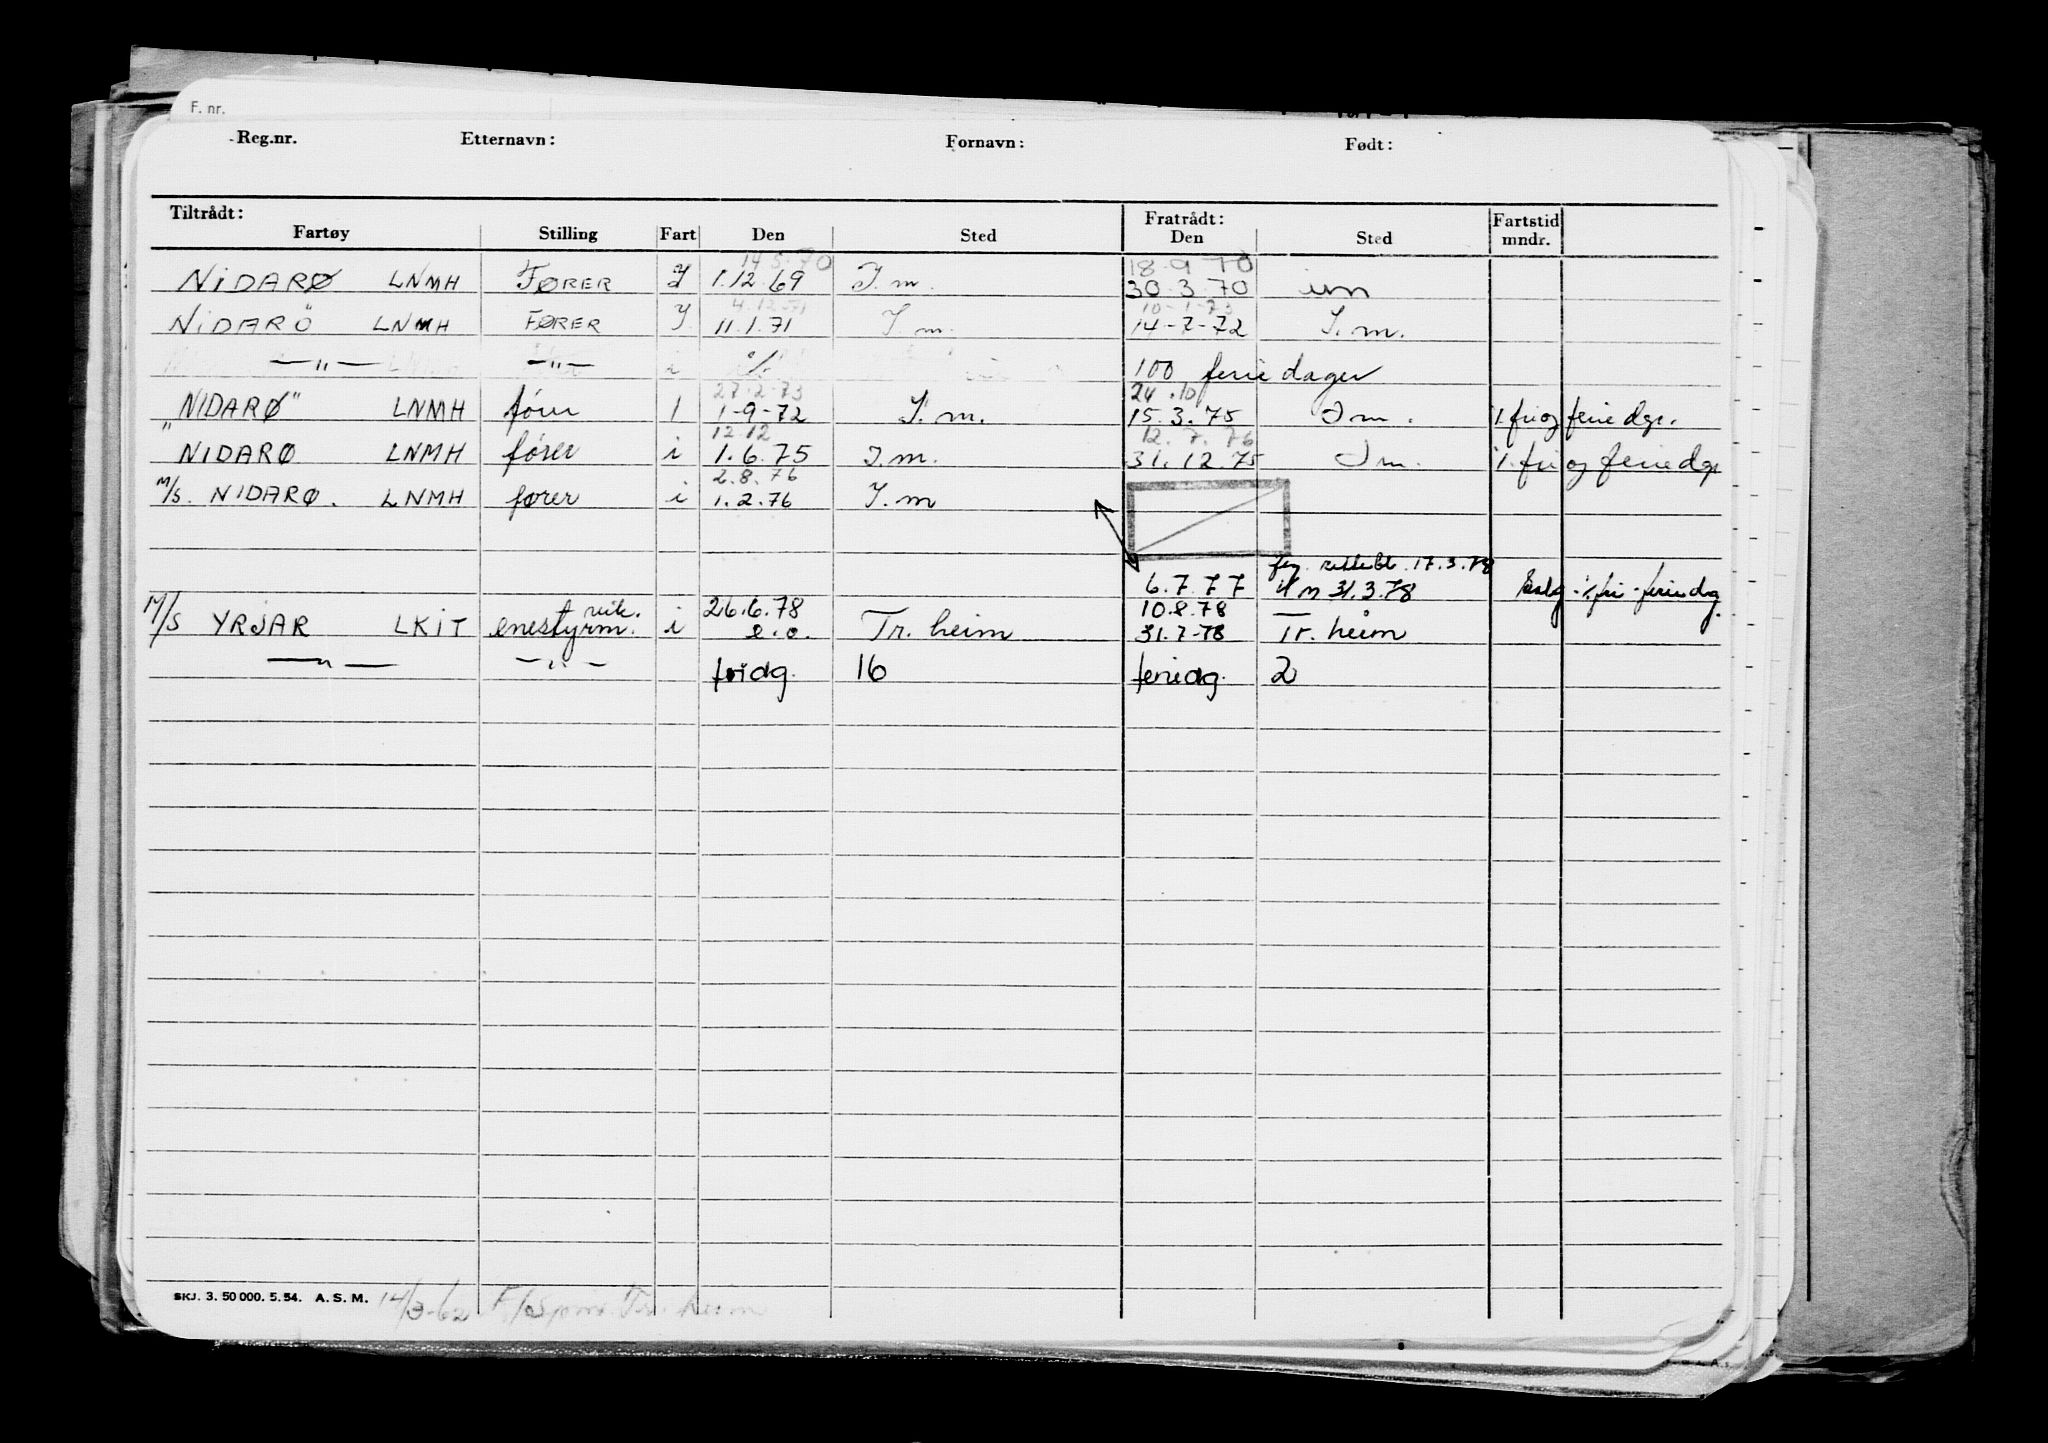 F. nr.
Reg.nr. Etternavn: Fornavn: Født:
Tiltrådt: Fratrådt: Fartstid
Fartøy Stilling Fart Den Sted Den Sted mndr.
14.5.70 18-9 70
NIDARØ LNMH FØRER I 1.12.69 I.m. 30.3.70 im
4.12.71 10-1-73
NIDARÖ LNMH FØRER I 11.1.71 I.m. 14-7-72 I.m.
—"— —"— i 100 feriedager
27.2.73 24.10
"NIDARØ" LNMH fører I 1-9-72 I.m. 15.3.75 I m. ·/. fri og feriedgr.
12.12 12.7.76
"NIDARØ LNMH fører i 1.6.75 I.m. 31.12.75 I m. ·/. fri og feriedgr
2.8.76
M/S. NIDARØ. LNMH fører i 1.2.76 I.m
17.3.78
6.7.77 31.3.78 Salg ·/. fri - feriedag.
vik. 26.6.78 10.8.78
M/S YRJAR LKIT enestyrm. i e.o. Tr. heim 31.7-78 Tr. heim
—"— —"— fridg. 16 feriedg. 2
SKJ. 3. 50 000. 5. 54. A. S. M. 14/3-62 Tr. heim